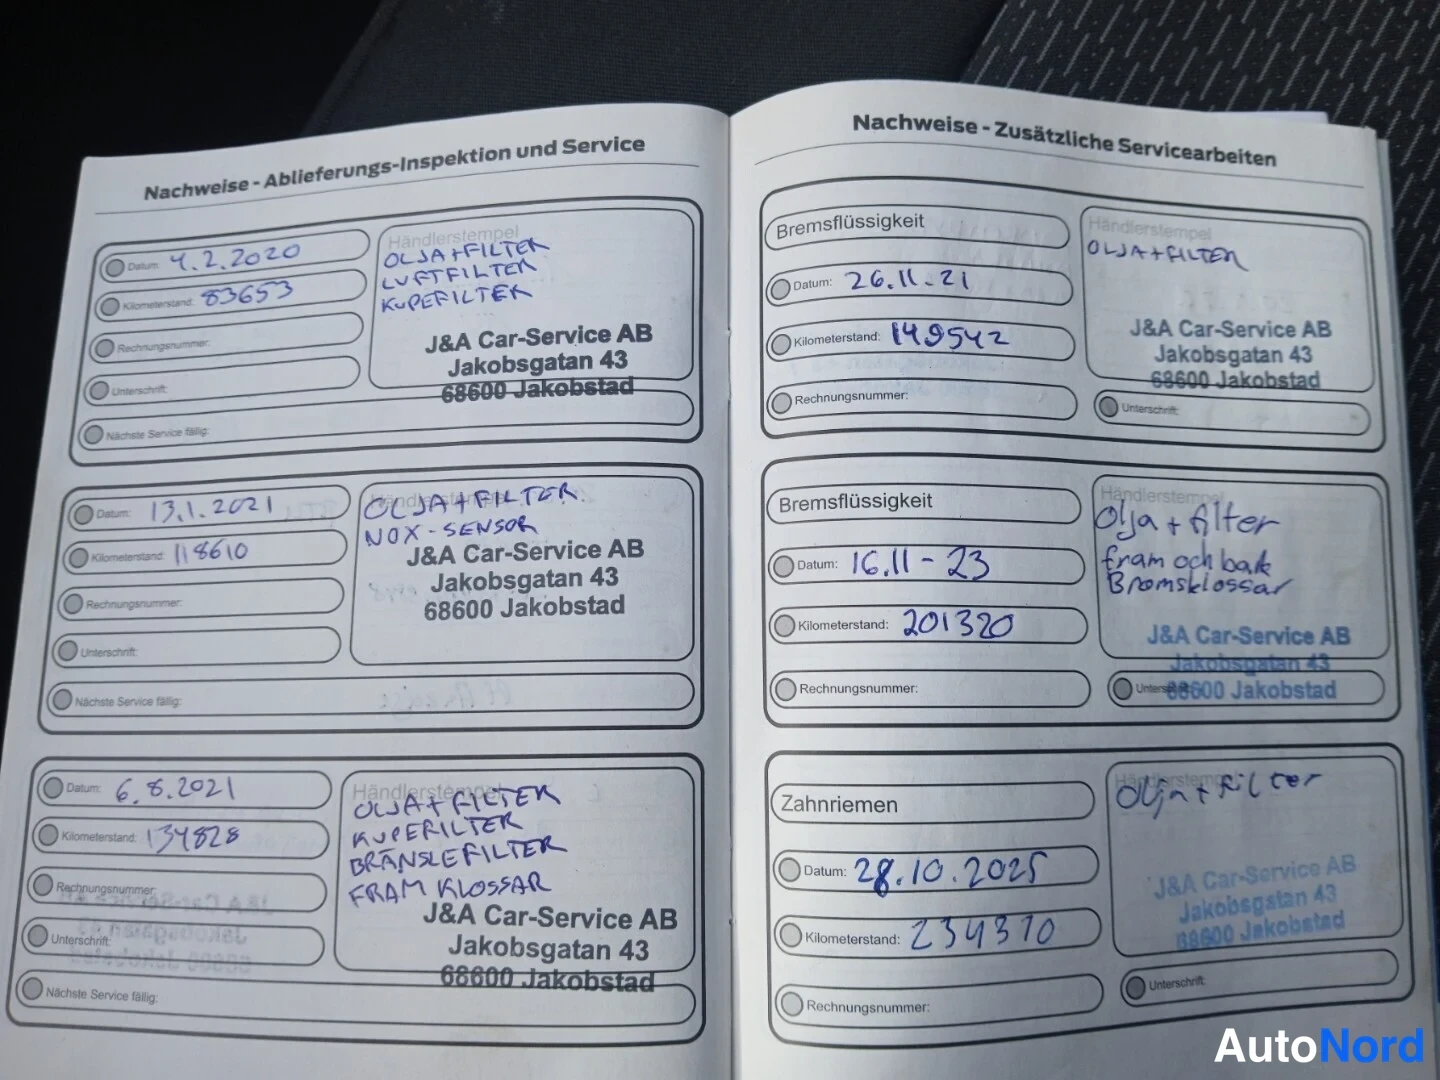 Nachweise - Ablieferungs-Inspektion und Service
Datum: 4.2.2020
Kilometerstand: 83653
Rechnungsnummer:
Unterschrift:
Nächste Service fällig:
Händlerstempel
OLJA+FILTER
LUFTFILTER
KUPEFILTER
J&A Car-Service AB
Jakobsgatan 43
68600 Jakobstad
Datum: 13.1.2021
Kilometerstand: 118610
Rechnungsnummer:
Unterschrift:
Nächste Service fällig:
Händlerstempel
OLJA+FILTER
NOX-SENSOR
J&A Car-Service AB
Jakobsgatan 43
68600 Jakobstad
Datum: 6.8.2021
Kilometerstand: 134828
Rechnungsnummer:
Unterschrift:
Nächste Service fällig:
Händlerstempel
OLJA+FILTER
KUPEFILTER
BRÄNSLEFILTER
FRAM KLOSSAR
J&A Car-Service AB
Jakobsgatan 43
68600 Jakobstad
Nachweise - Zusätzliche Servicearbeiten
Bremsflüssigkeit
Datum: 26.11.21
Kilometerstand: 149542
Rechnungsnummer:
Händlerstempel
OLJA+FILTER
J&A Car-Service AB
Jakobsgatan 43
68600 Jakobstad
Unterschrift:
Bremsflüssigkeit
Datum: 16.11-23
Kilometerstand: 201320
Rechnungsnummer:
Händlerstempel
Olja + filter
fram och bak
Bromsklossar
J&A Car-Service AB
Jakobsgatan 43
68600 Jakobstad
Unterschrift:
Zahnriemen
Datum: 28.10.2025
Kilometerstand: 234370
Rechnungsnummer:
Händlerstempel
Olja + filter
J&A Car-Service AB
Jakobsgatan 43
68600 Jakobstad
Unterschrift:
AutoNord